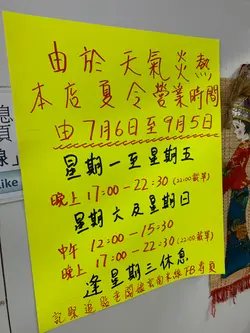 由於天氣炎熱
本店夏令營業時間
由7月6日至9月5日
星期一至星期五
晚上17:00-22:30 (22:00截單)
星期六及星期日
中午 12:00-15:30
晚上 17:00-22:30 (22:00截單)
逢星期三休息
記緊追蹤老闆娘雲南米線FB專頁
息
頁
線」
Like